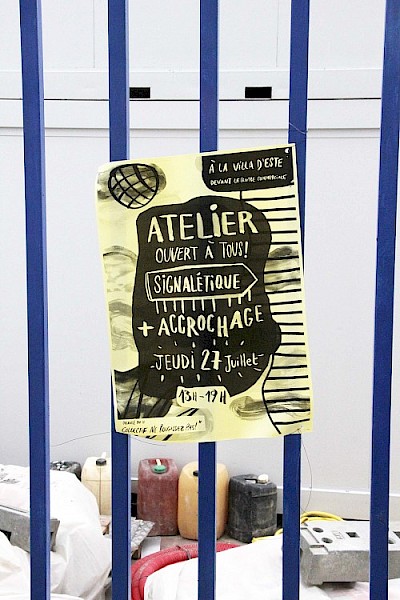 À LA VILLA D'ESTE
DEVANT LE CENTRE COMMERCIALE
ATELIER
OUVERT À TOUS!
SIGNALÉTIQUE
+ ACCROCHAGE
-JEUDI 27 Juillet-
13H-19H
COLLECTIF NE ROUGISSEZ PAS!